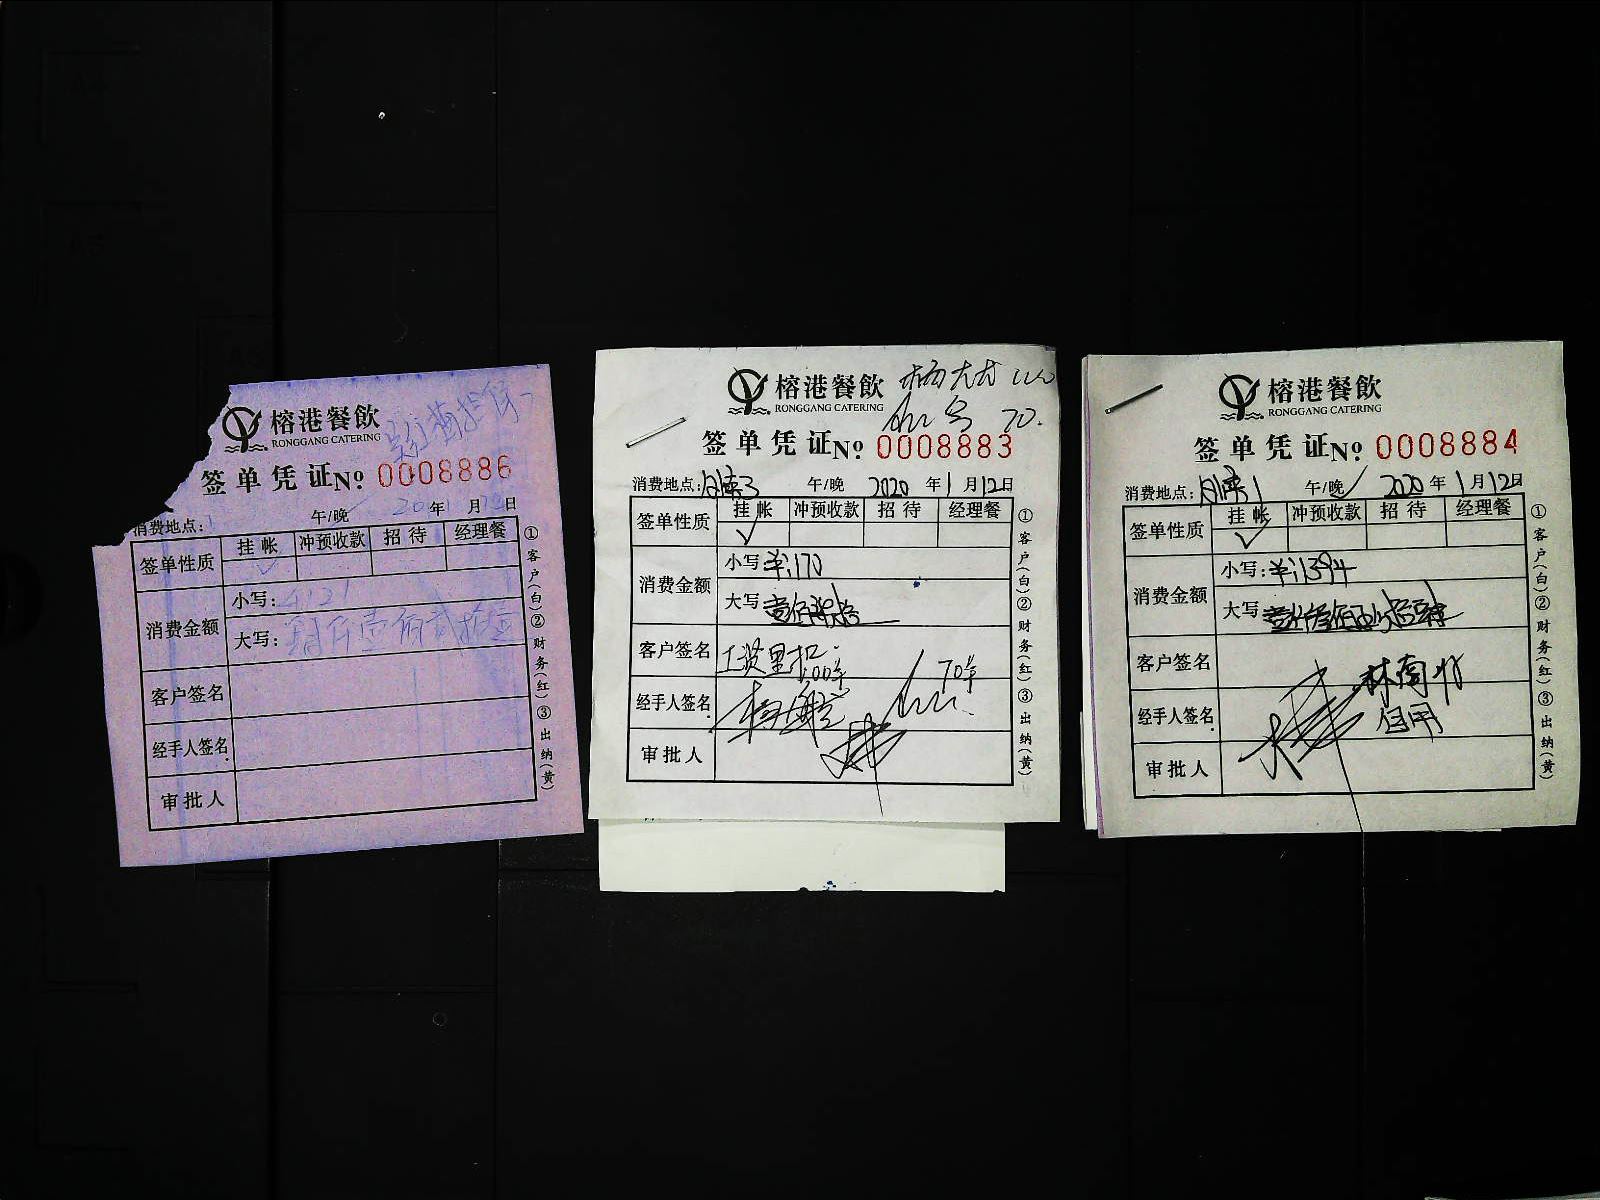 榕港餐飲
RONGGANG CATERING
签单凭证 No. 0008886
消费地点:
午/晚 年 月 日
签单性质 挂帐 冲预收款 招待 经理餐
消费金额
小写:
大写: 肆仟壹佰贰拾壹
客户签名
经手人签名
审批人
①客户(白)②财务(红)③出纳(黄)
榕港餐飲
RONGGANG CATERING
70.
签单凭证 No. 0008883
消费地点: 午/晚 2020 年 1 月 12 日
签单性质 挂帐 冲预收款 招待 经理餐
消费金额
小写: ¥:170
大写: 壹佰柒拾
客户签名 工资里扣 100年
70年
经手人签名
审批人
①客户(白)②财务(红)③出纳(黄)
榕港餐飲
RONGGANG CATERING
签单凭证 No. 0008884
消费地点: 午/晚 2020 年 1 月 12 日
签单性质 挂帐 冲预收款 招待 经理餐
消费金额
小写: ¥:1394
大写: 壹仟叁佰玖拾肆
客户签名
经手人签名
审批人
①客户(白)②财务(红)③出纳(黄)